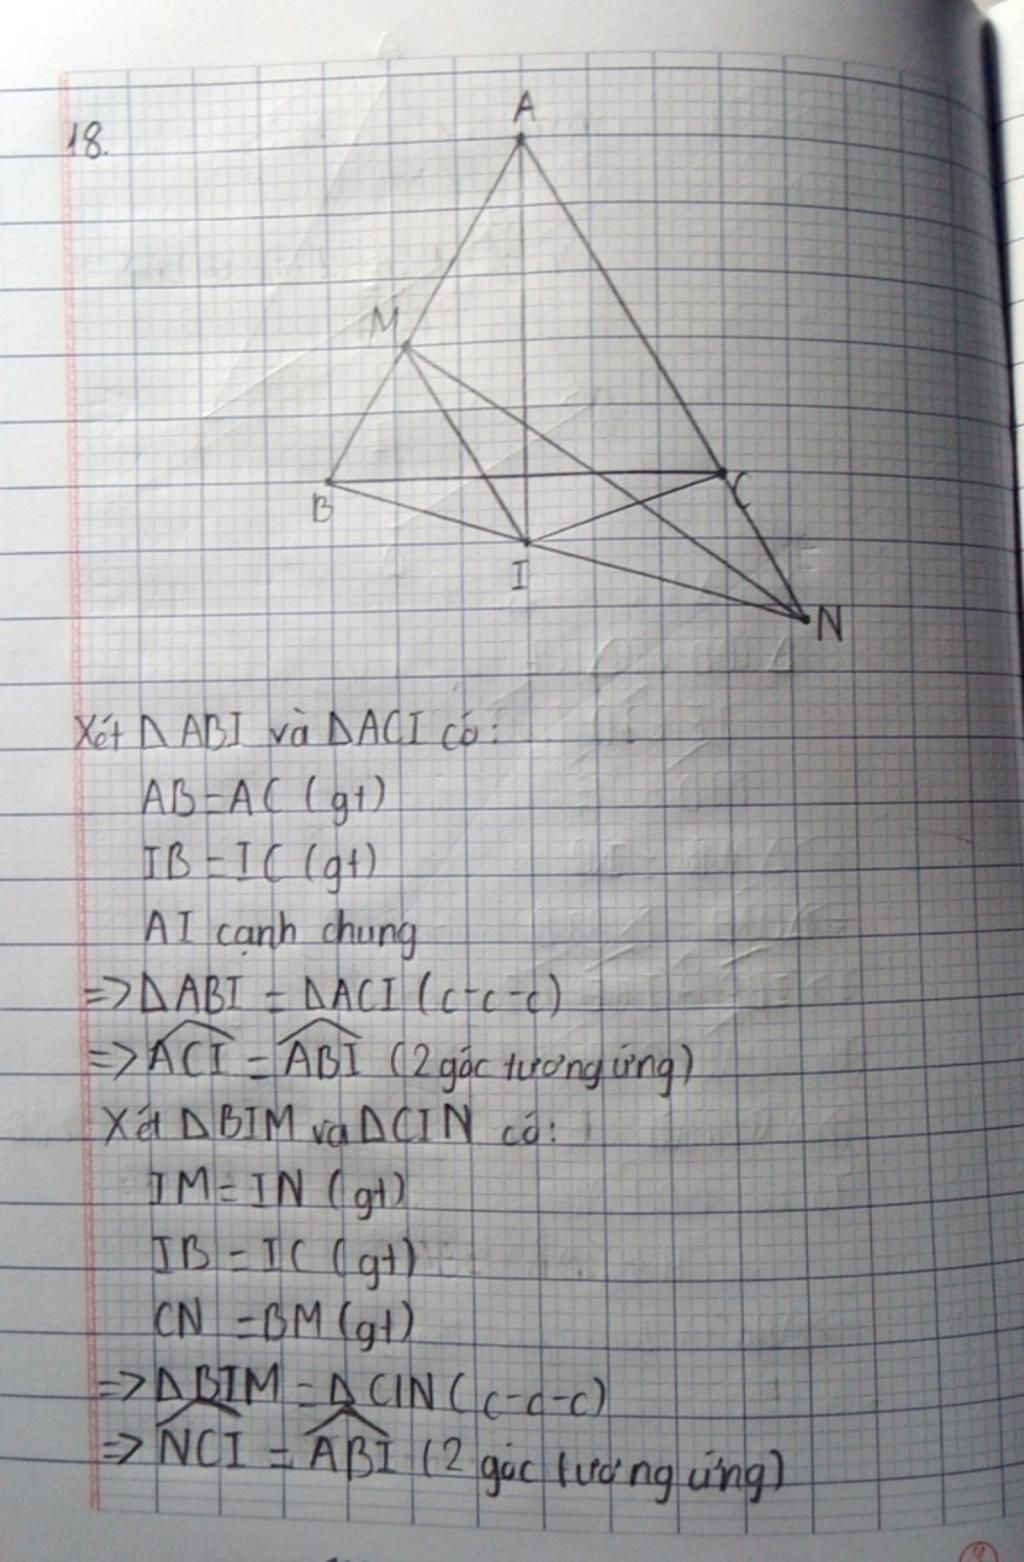 18.
A
M
B
C
I
N
Xét ΔABI và ΔACI có:
AB=AC (gt)
IB=IC (gt)
AI cạnh chung
=>ΔABI = ΔACI (c-c-c)
=>ACI = ABI (2 góc tương ứng)
Xét ΔBIM va ΔCIN có:
IM=IN (gt)
IB=IC (gt)
CN =BM (gt)
=>ΔBIM = ΔCIN (c-c-c)
=>NCI = ABI (2 góc tương ứng)